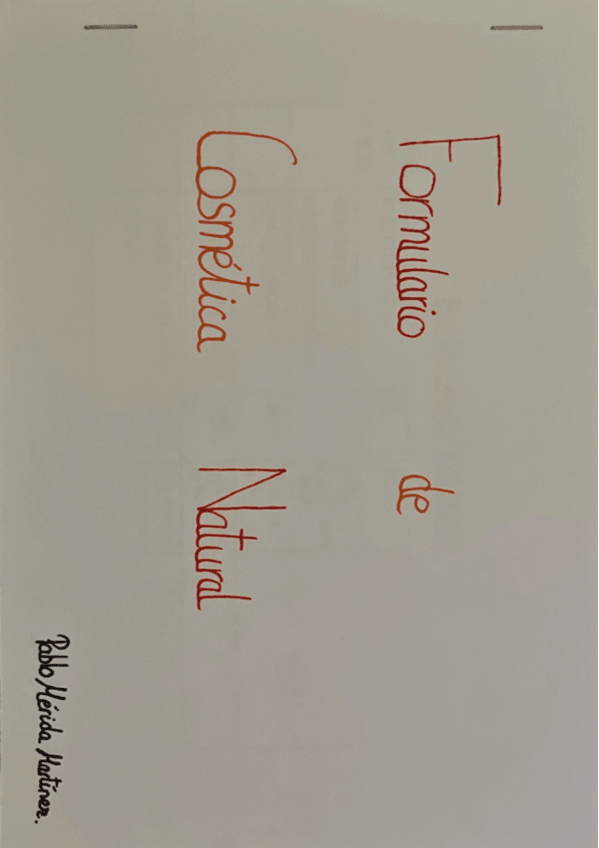 Formulario de
Cosmética Natural
Pablo Mérida Martínez.